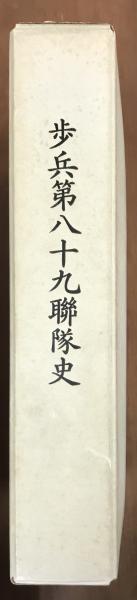 歩兵第八十九聯隊史